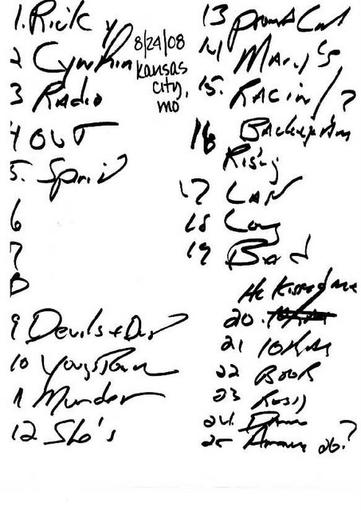 1. Ricky
2 Cynthia
3 Radio
4 OUT
5. Spirit
6
7
8
9 Devils + Dust
10 Youngstown
11 Murder
12 She's
8/24/08
Kansas
City,
MO
13 Promised Land
14 Mary's
15. Racin / ?
16
Rising
17 LAN
18 Long
19 Bad
He Kissed me
20.
21 10th
22 BOOK
23 Rosy
24.
25 ?